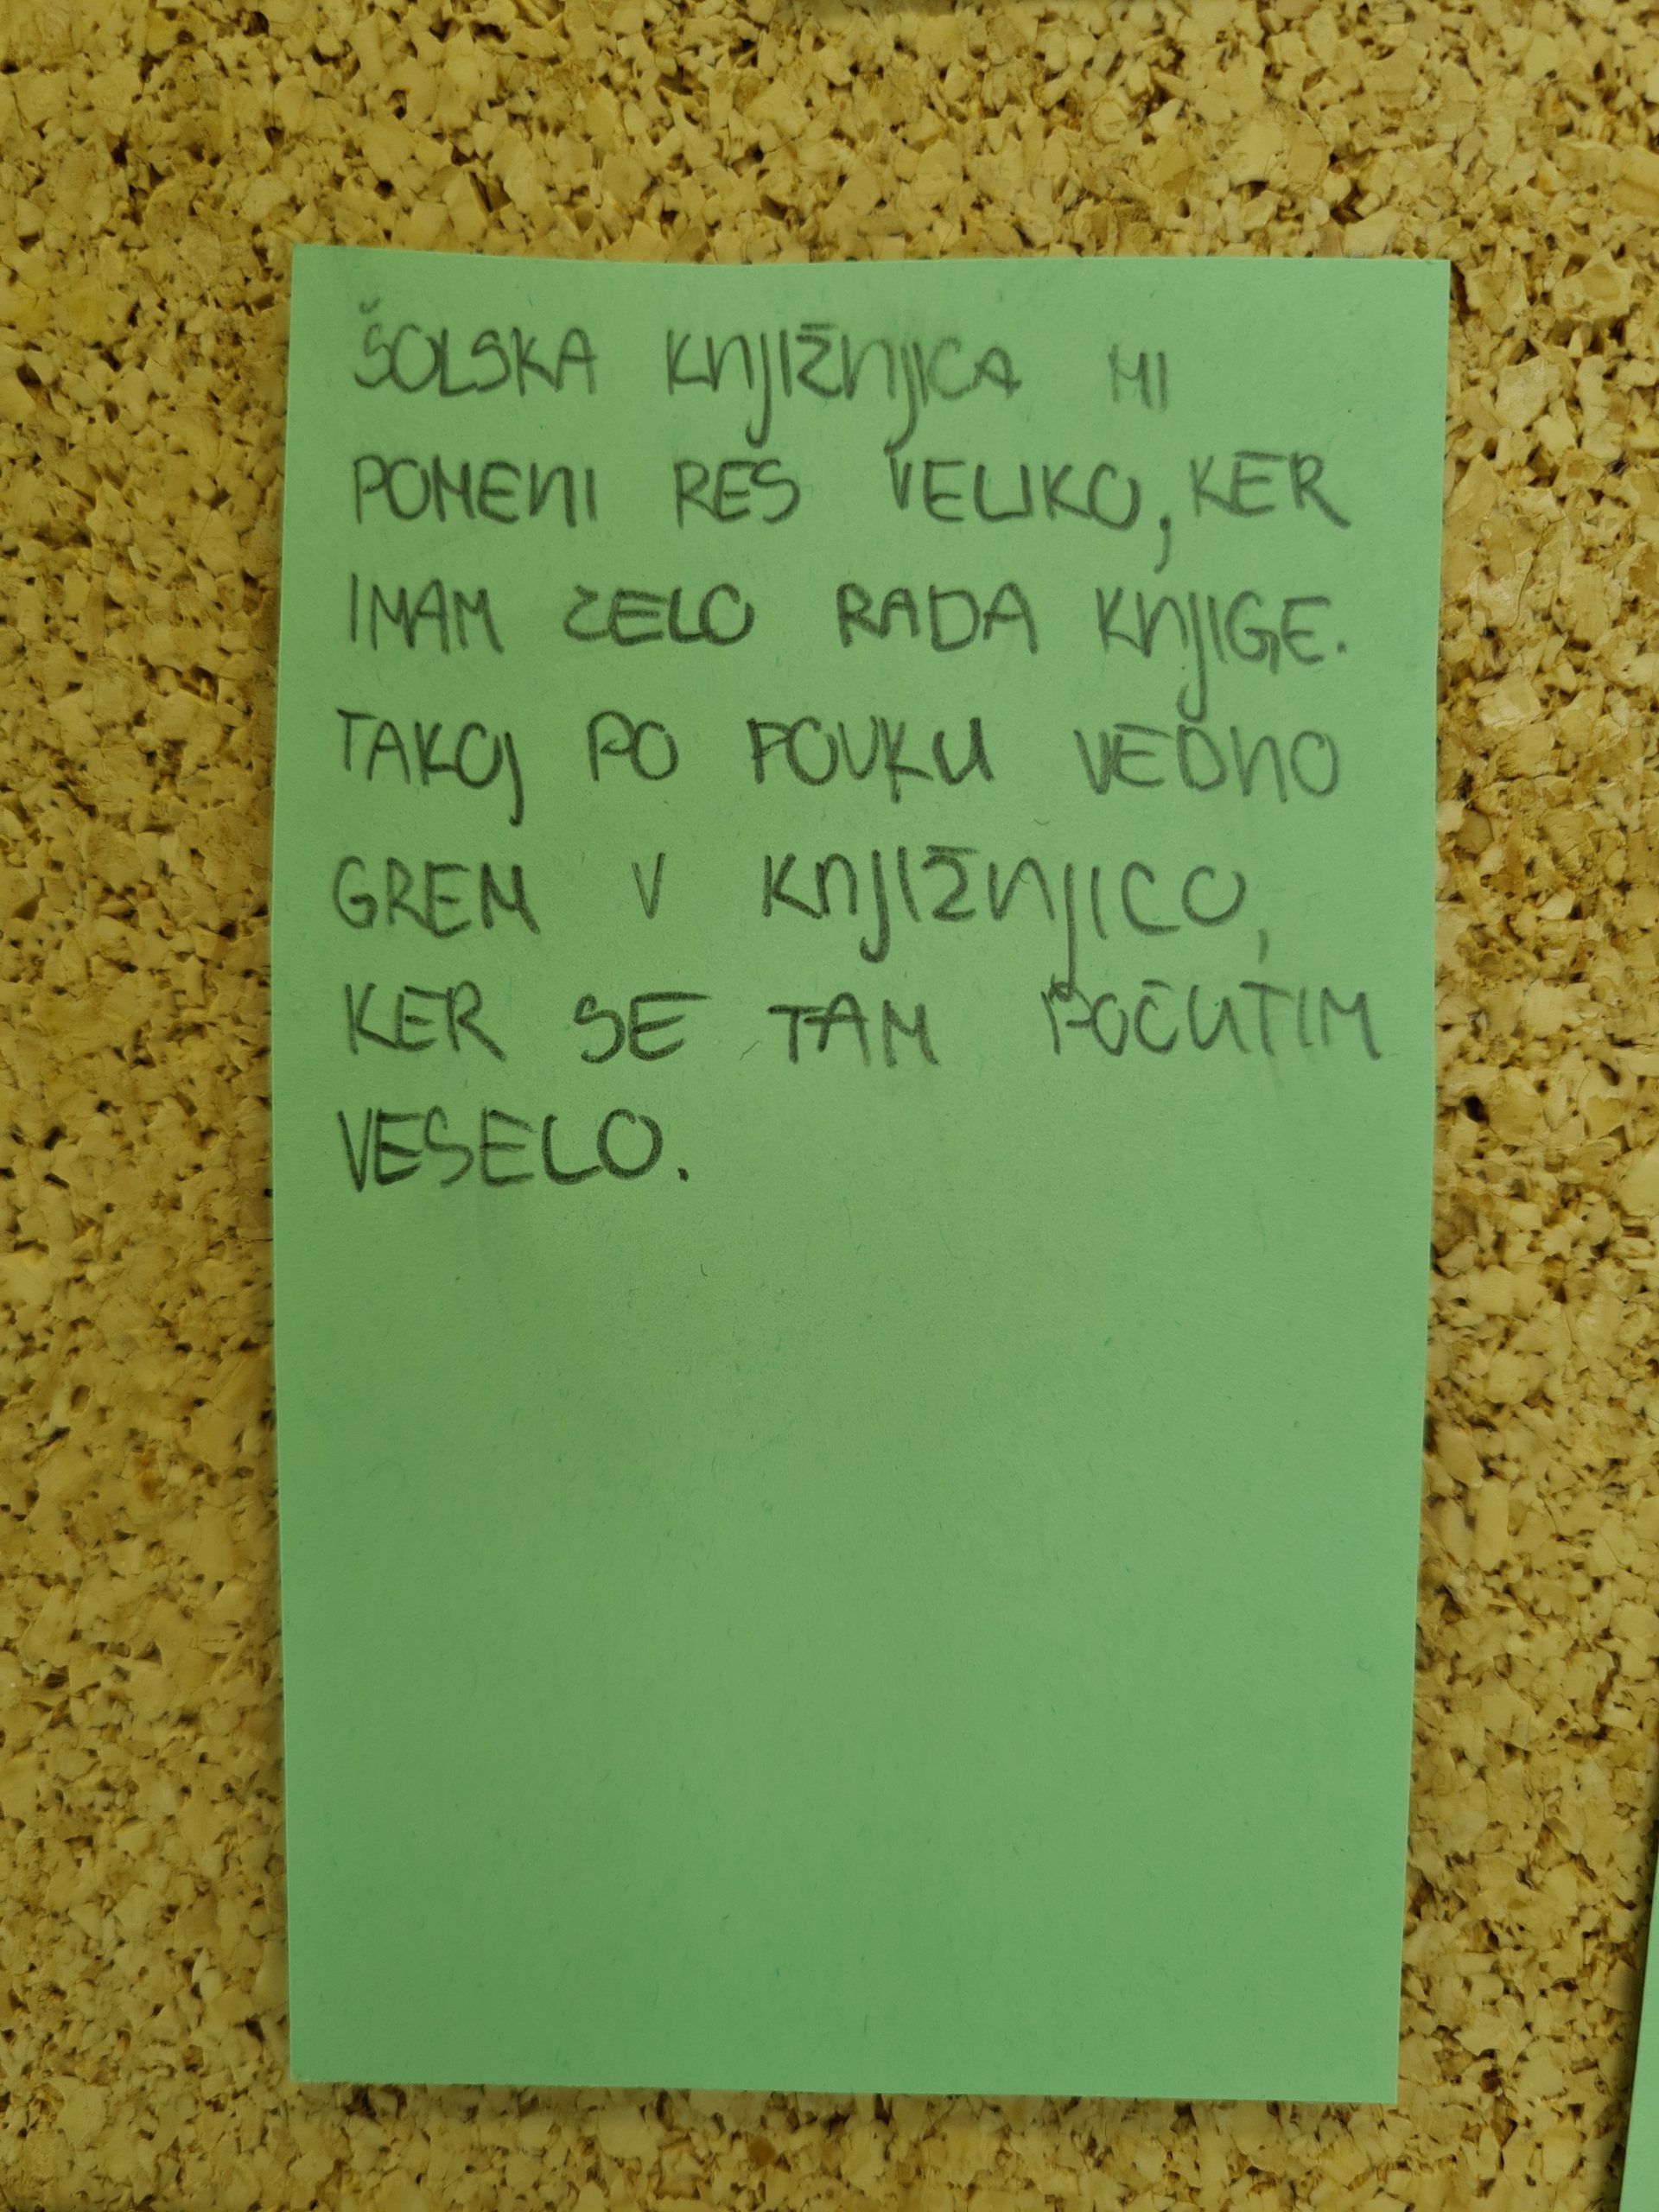 ŠOLSKA KNJIŽNJICA MI
POMENI RES VELIKO, KER
IMAM ZELO RADA KNJIGE.
TAKOJ PO POUKU VEDNO
GREM V KNJIŽNJICO,
KER SE TAM POČUTIM
VESELO.